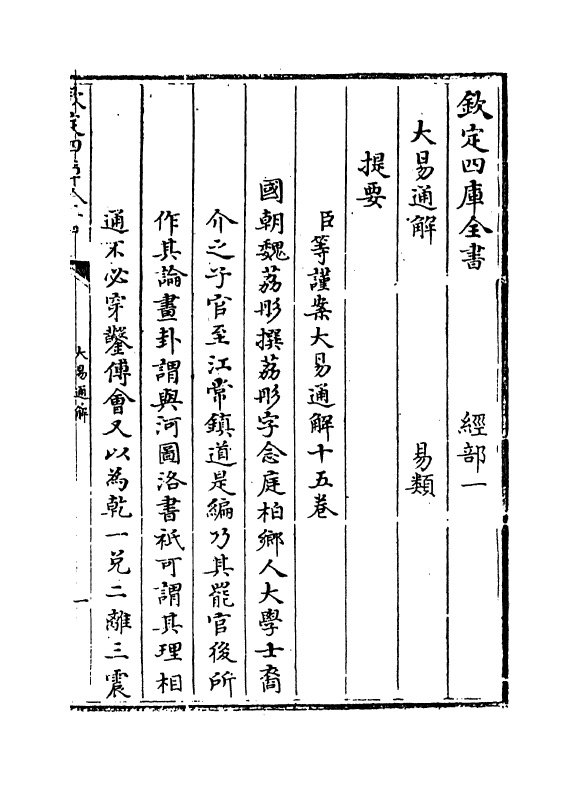 欽定四庫全書　　　經部一
大易通解　　　易類
提要
臣等謹案大易通解十五卷
國朝魏荔彤撰荔彤字念庭柏鄉人大學士裔
介之子官至江常鎮道是編乃其罷官後所
作其論畫卦謂與河圖洛書祇可謂其理相
通不必穿鑿傅會又以為乾一兌二離三震
大易通解
一